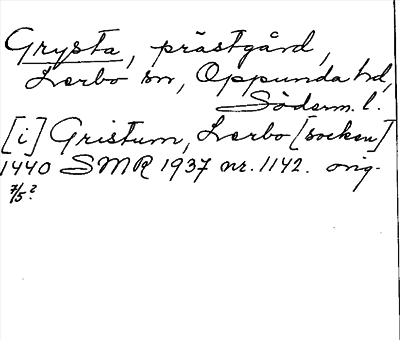 Grysta, prästgård,
Lerbo sn, Oppunda hd,
Söderm. l.
[i] Gristum, Lerbo [socken]
1440 SMR 1937 nr. 1142. orig.
7/5?